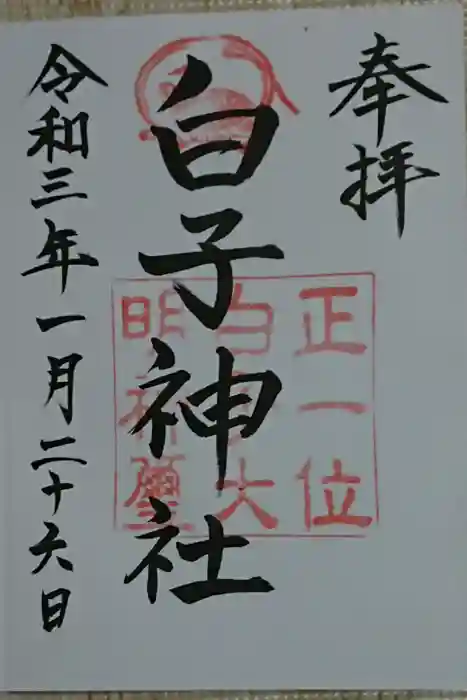 奉拝
白子神社
令和三年一月二十六日
正一位
白子大
明神璽